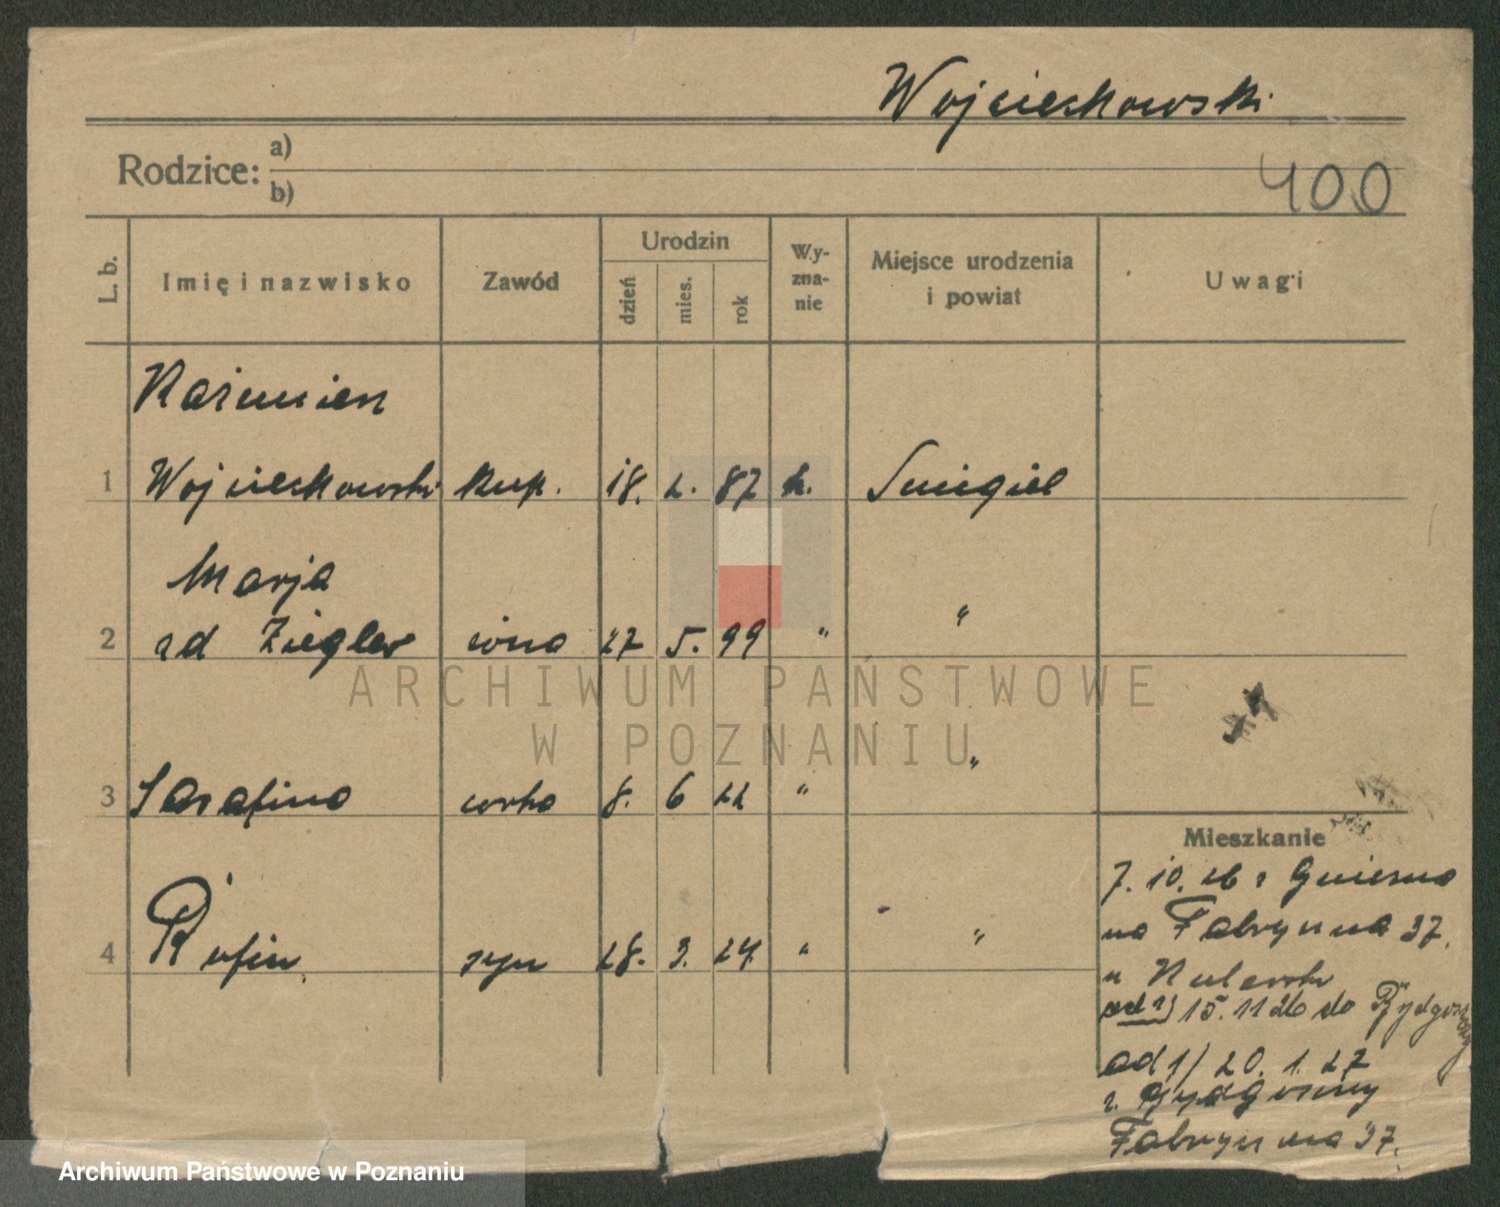 Wojciechowski
400
Rodzice: a)
b)
L. b.
Imię i nazwisko
Zawód
Urodzin
dzień
mies.
rok
Wy-
zna-
nie
Miejsce urodzenia
i powiat
Uwagi
Kazimierz
1 Wojciechowski kup. 18. 2. 87 k. Śmigiel
Marja
2 zd Ziegler żona 27 5. 99 " "
3 Serafina córka 8. 6 22 " "
4 Rufin syn 28. 3. 24 " "
Mieszkanie
7. 10. 26 z Gniezna
na Fabryczna 37.
u
od 1) 15. 11 26 do Bydgoszczy
od 1) 20. 1. 27
z. Bydgoszczy
Fabryczna 37.
ARCHIWUM PAŃSTWOWE
W POZNANIU
Archiwum Państwowe w Poznaniu